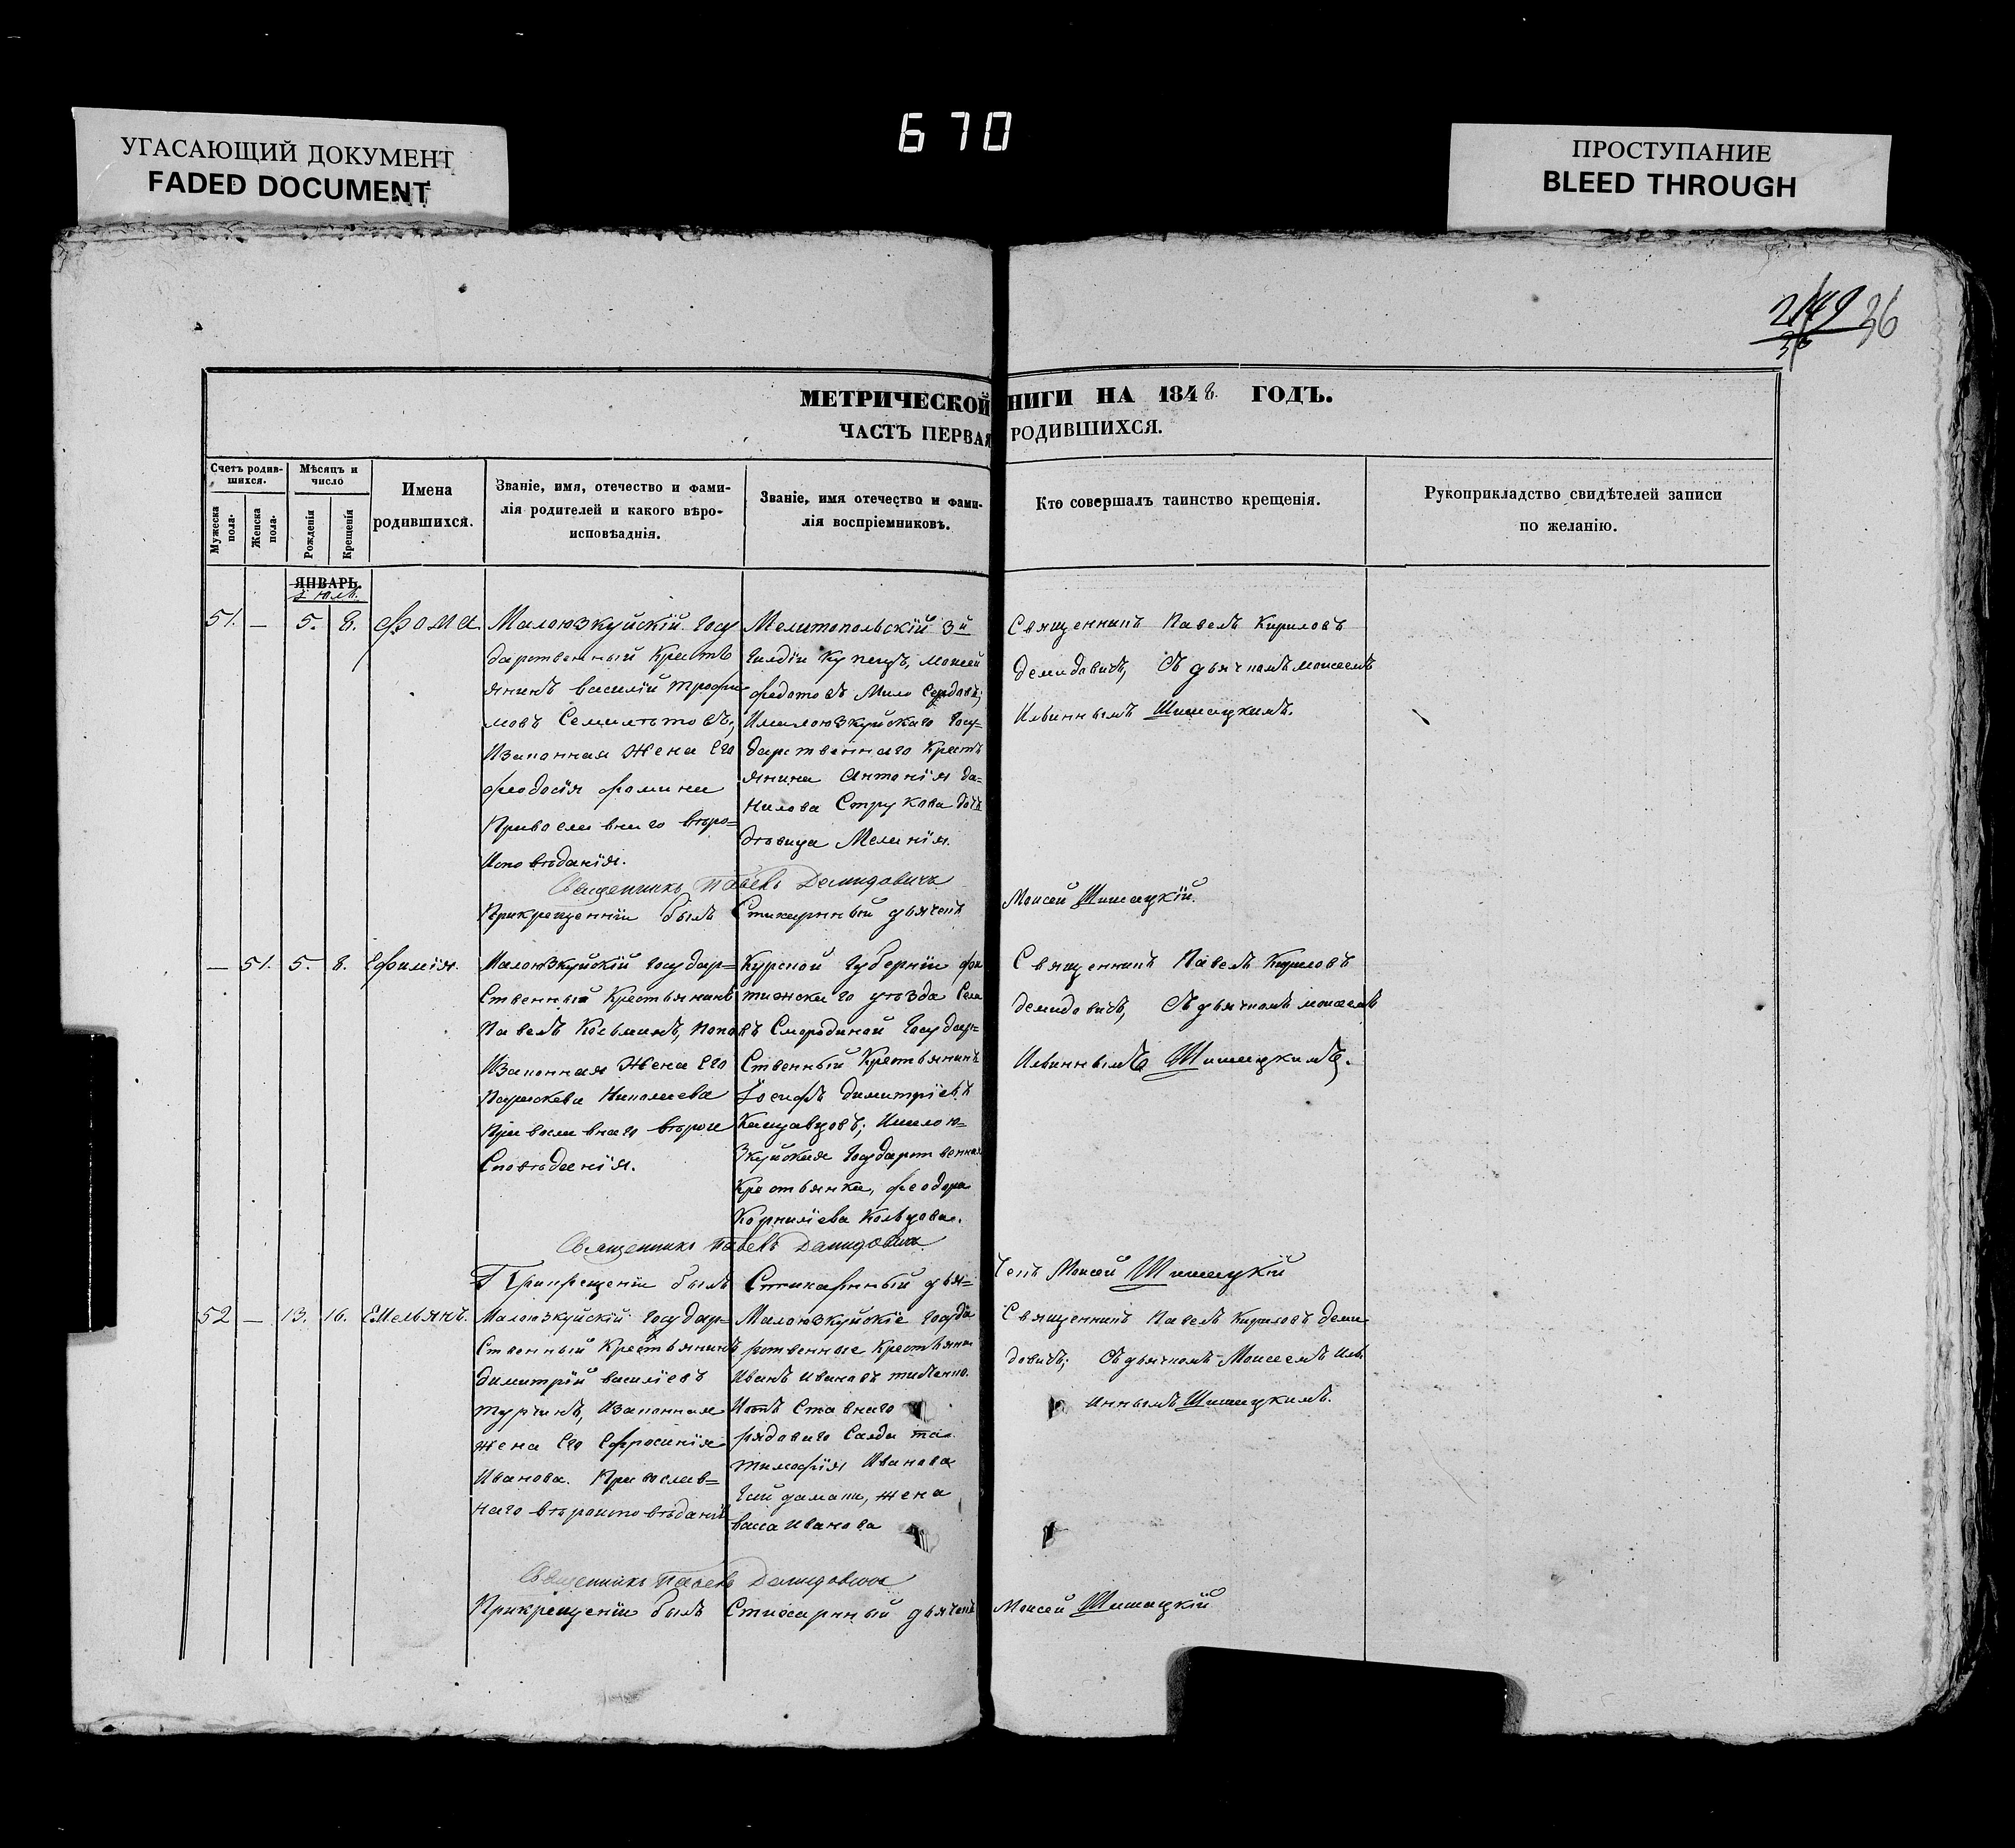 670
УГАСАЮЩИЙ ДОКУМЕНТ
FADED DOCUMENT
ПРОСТУПАНИЕ
BLEED THROUGH
36
МЕТРИЧЕСКОЙ НИГИ НА 1848 ГОДЪ.
ЧАСТЬ ПЕРВАЯ РОДИВШИХСЯ.
Счетъ родив-
шихся.
Мужеска
пола.
Женска
пола.
Мѣсяцъ и
число
Рожденія
Крещенія
Имена
родившихся.
Званіе, имя, отечество и фами-
лія родителей и какого вѣро-
исповѣаднія.
Званіе, имя отечество и фами-
лія воспріемниковъ.
Кто совершалъ таинство крещенія.
Рукоприкладство свидѣтелей записи
по желанію.
ЯНВАРЬ.
51. — 5. 8. Фома
Малоюзкуйскій Госу
дарственный Крестъ
янинъ василій трофи
мовъ Семилѣтовъ,
Изаконная Жена Его
феодосія фомина
Православнаго вѣро=
Исповѣданія.
Мелитопольскій 3й
Гилдіи Купецъ, моисей
федотовъ
Ималоюзкуйскаго Госу-
дарственнаго Крестъ
янина Антонія да=
нилова Струкова дочь
дѣвица Меланія.
Священникъ Павелъ Кириловъ
демидовичъ, Съ дьячкомъ моисеемъ
Ильиннымъ Шишацкимъ.
Священникъ Павелъ Демидовичъ
Прикрещеніи былъ Стихарный дьячекъ Моисей Шишацкій.
— 51. 5. 8. Ефимія.
Малоюзкуйскій Государ=
Ственный Крестьянинъ
Павелъ Косьминъ, Поповъ
Изаконная Жена Его
Параскева Николаева
Православнаго вѣрои
Сповѣданія.
Курской Губерніи фа
тижскаго уѣзда Села
Смородиной Государ=
Ственный Крестьянинъ
Іосифъ димитріевъ
Имало ю=
зкуйская Государственная
Крестьянка, феодора
Корниліева Кольцова.
Священникъ Павелъ Кириловъ
демидовичъ, Съ дьячкомъ моисеемъ
Ильиннымъ Шишацкимъ.
Священникъ Павелъ Демидовичъ
Прикрещеніи былъ Стихарный дья=чекъ Моисей Шишацкій
52 — 13. 16. Емельянъ.
Малоюзкуйскій Государ=
Ственный Крестьянинъ
димитрій василіевъ
турчинъ, Изаконная
жена Его Ефросинія
Иванова. Православ=
наго вѣроисповѣданія
Малоюзкуйскіе Госуда
рственные Крестьяни
Иванъ Ивановъ
Иотъ Ставнаго
рядоваго Салда та
тимофія Иванова
Гайдамаки, жена
васса Иванова
Священникъ Павелъ Кириловъ деми
довичъ; Съ дьячкомъ Моисеемъ Иль
иннымъ Шишацкимъ.
Священникъ Павелъ Демидовичъ
Прикрещеніи былъ Стихарный дьячекъ Моисей Шишацкій